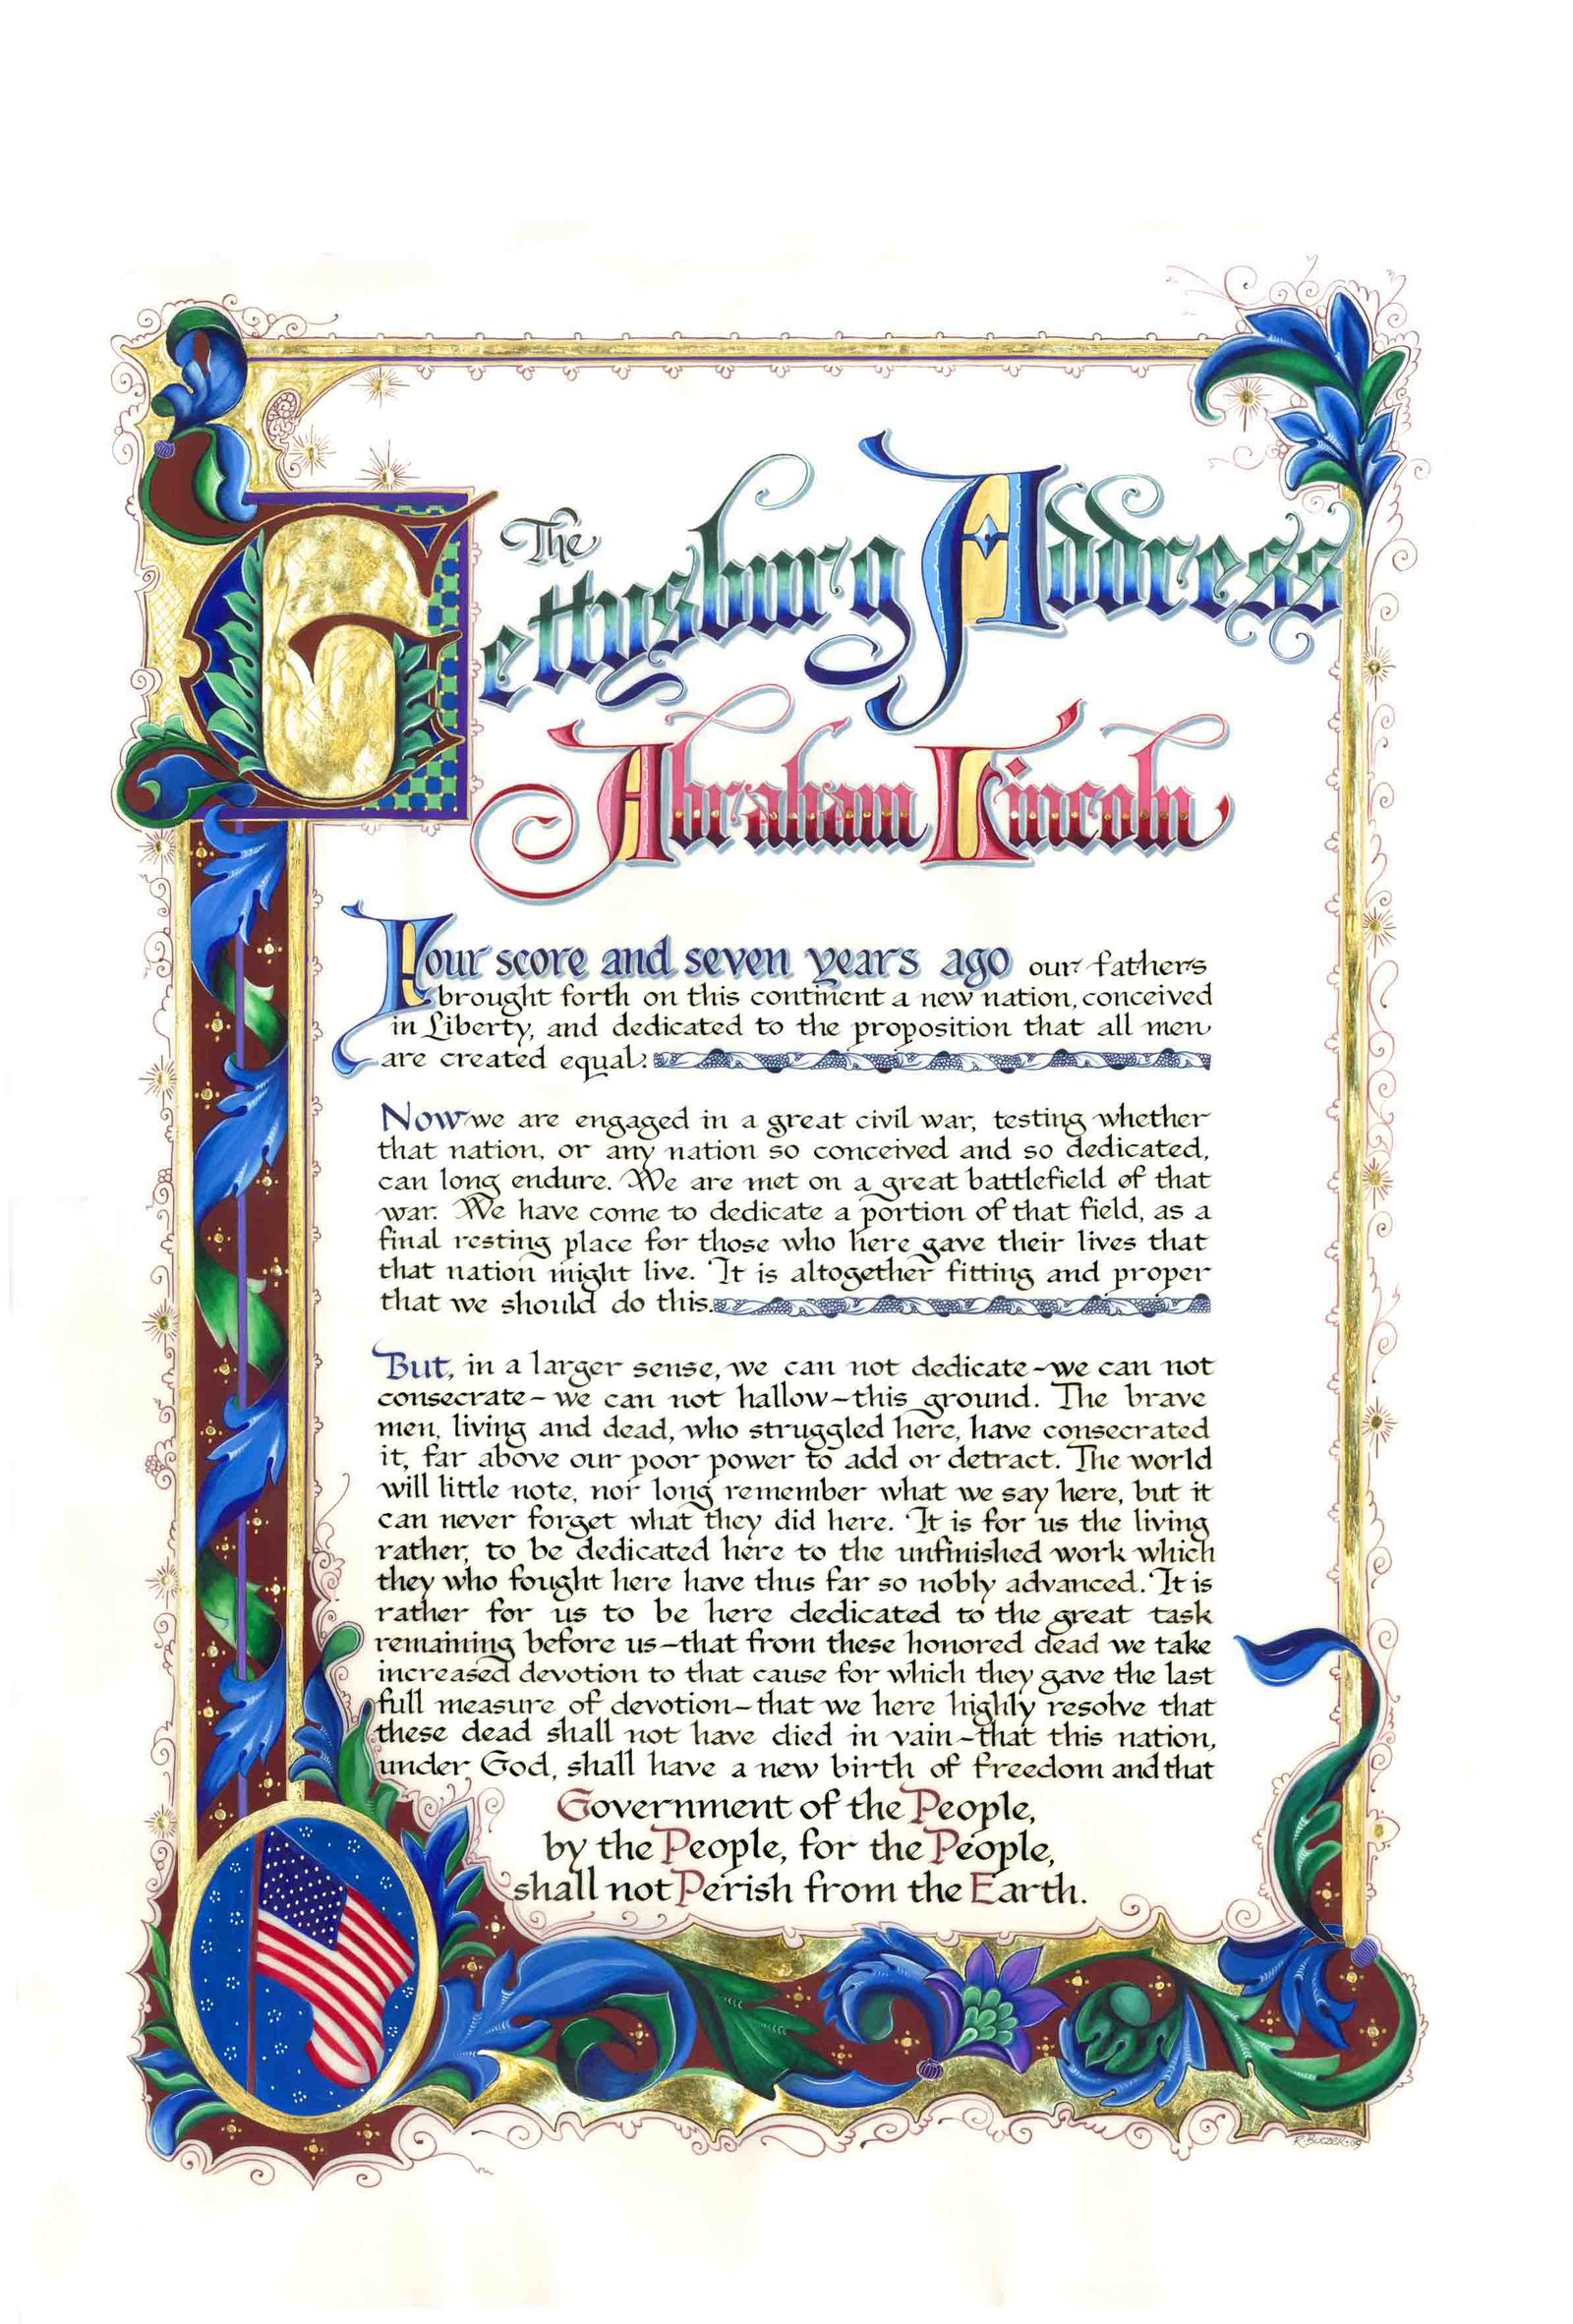 The
Gettysburg Address
Abraham Lincoln
Four score and seven years ago our fathers
brought forth on this continent a new nation, conceived
in Liberty, and dedicated to the proposition that all men
are created equal.
Now we are engaged in a great civil war, testing whether
that nation, or any nation so conceived and so dedicated,
can long endure. We are met on a great battlefield of that
war. We have come to dedicate a portion of that field, as a
final resting place for those who here gave their lives that
that nation might live. It is altogether fitting and proper
that we should do this.
But, in a larger sense, we can not dedicate–we can not
consecrate–we can not hallow–this ground. The brave
men, living and dead, who struggled here, have consecrated
it, far above our poor power to add or detract. The world
will little note, nor long remember what we say here, but it
can never forget what they did here. It is for us the living
rather, to be dedicated here to the unfinished work which
they who fought here have thus far so nobly advanced. It is
rather for us to be here dedicated to the great task
remaining before us–that from these honored dead we take
increased devotion to that cause for which they gave the last
full measure of devotion–that we here highly resolve that
these dead shall not have died in vain–that this nation,
under God, shall have a new birth of freedom and that
Government of the People,
by the People, for the People,
shall not Perish from the Earth.
R. Buczek 09